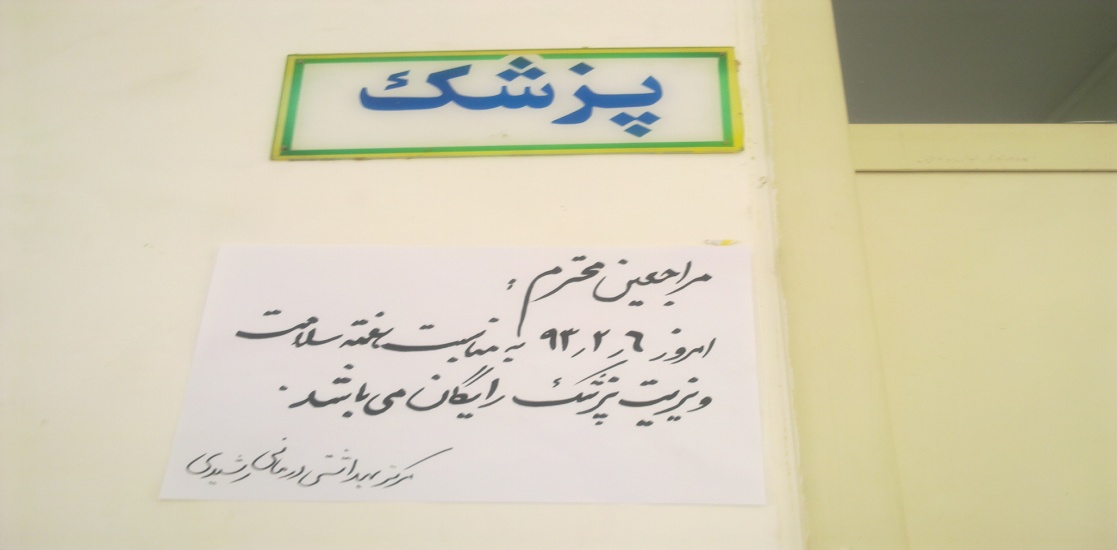 پزشک
مراجعین محترم :
امروز ۹۳٫۲٫۶ به مناسبت هفته سلامت
ویزیت پزشک رایگان می باشد .
مرکز بهداشتی درمانی رشیدی